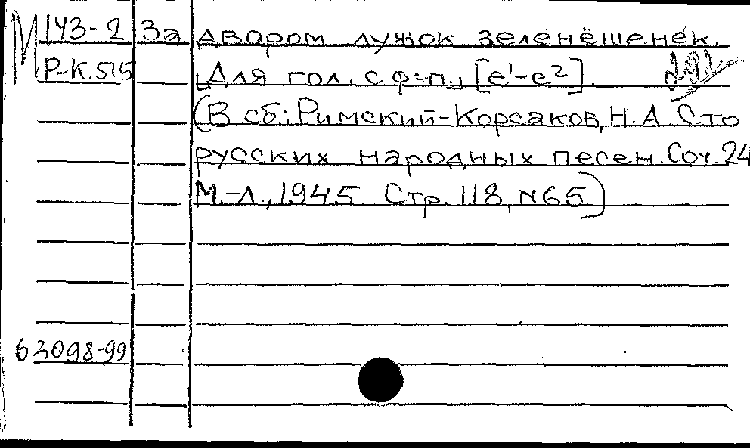 М 143-2 За двором лужок зеленёшенек.
Р-К.515 Для гол. с ф-п. [e¹-e²].
(В сб.: Римский-Корсаков, Н.А. Сто
русских народных песен. Соч. 24
М.-Л., 1945 Стр. 118, №65)
63098-99